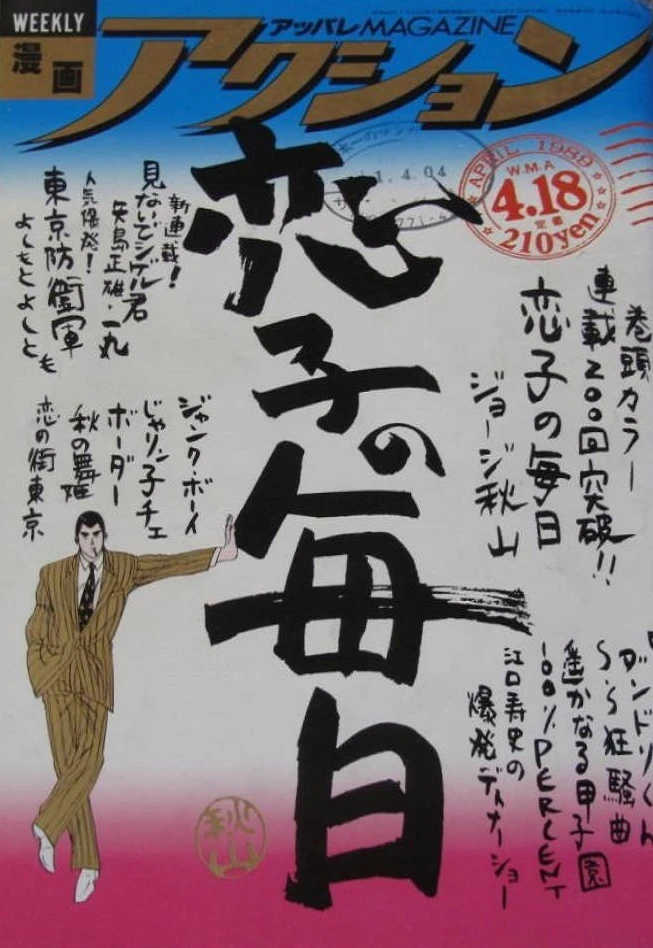 WEEKLY
漫画
アクション
アッパレMAGAZINE
APRIL 1989
W.M.A
4.18
定価
210yen
4.04
巻頭カラー
連載200回突破!!
恋子の毎日
ジョージ秋山
恋子の毎日
新連載!
見ないでシゲル君
矢島正雄・一丸
人気爆発!
東京防衛軍
よしもとよしとも
ジャンク・ボーイ
じゃりン子チエ
ボーダー
秋の舞姫
恋の街東京
ダンドリくん
S・S狂騒曲
遥かなる甲子園
100%PERCENT
江口寿史の
爆発ディナーショー
秋山